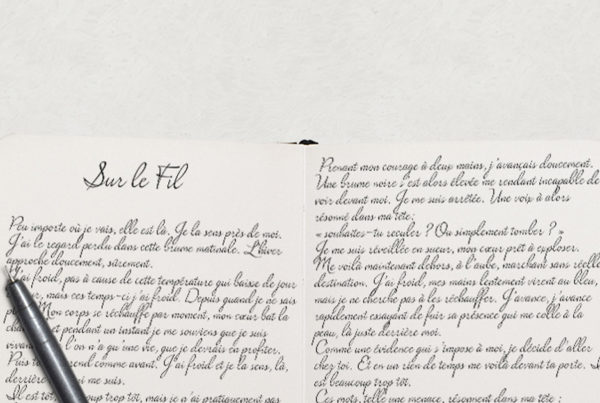 Sur le Fil
Peu importe où je vais, elle est là. Je la sens près de moi.
J'ai le regard perdu dans cette brume matinale. L'hiver
approche doucement, sûrement.
J'ai froid, pas à cause de cette température qui baisse de jour
mais ces temps-ci j'ai froid. Depuis quand je ne sais
Mon corps se réchauffe par moment, mon cœur bat la
et pendant un instant je me souviens que je suis
l'on n'a qu'une vie, que je devrais en profiter.
Puis comme avant. J'ai froid et je la sens, là,
derrière qui me suis.
Il est tôt, trop tôt, mais je n'ai pratiquement pas
Prenant mon courage à deux mains, j'avançais doucement.
Une brume noire s'est alors élevée me rendant incapable de
voir devant moi. Je me suis arrêtée. Une voix à alors
résonné dans ma tête :
« souhaites-tu reculer ? Ou simplement tomber ? »
Je me suis réveillée en sueur, mon cœur prêt à exploser.
Me voilà maintenant dehors, à l'aube, marchant sans réelle
destination. J'ai froid, mes mains lentement virent au bleu,
mais je ne cherche pas à les réchauffer. J'avance, j'avance
rapidement essayant de fuir sa présence qui me colle à la
peau, là juste derrière moi.
Comme une évidence qui s'impose à moi, je décide d'aller
chez toi. Et en un rien de temps me voilà devant ta porte. Il
est beaucoup trop tôt.
Ces mots, telle une menace, résonnent dans ma tête :